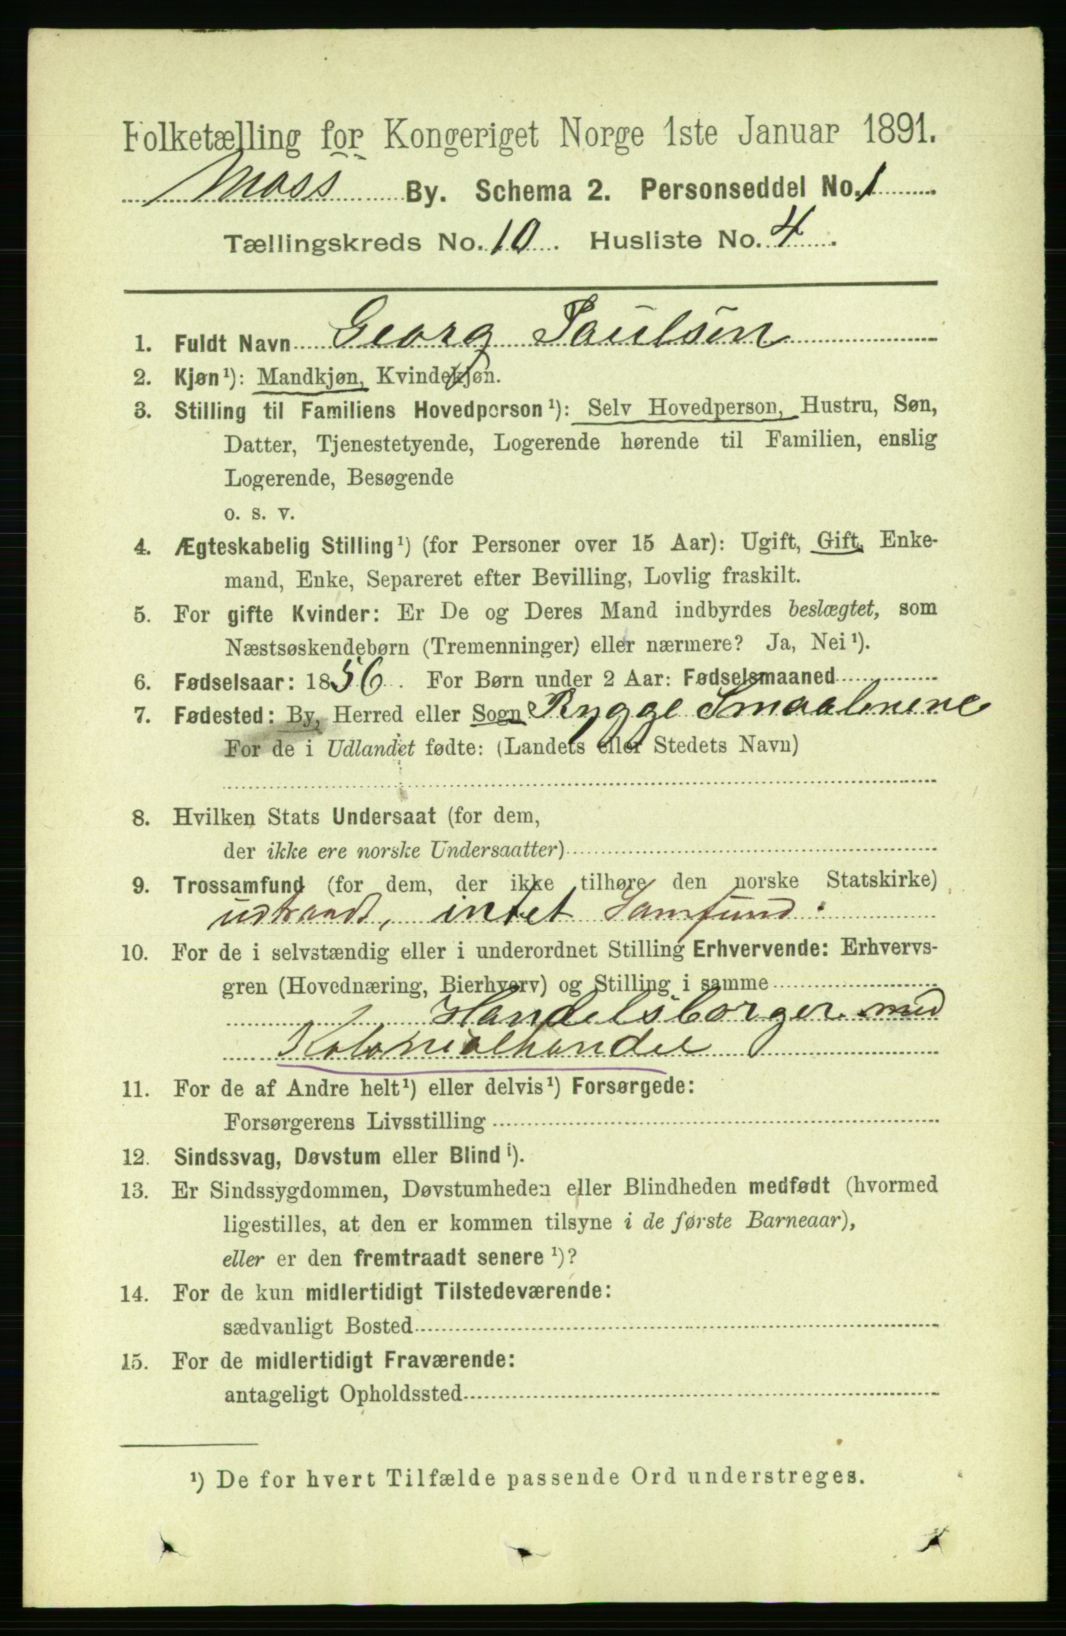 Folketælling for Kongeriget Norge 1ste Januar 1891.
Moss By. Schema 2. Personseddel No. 1
Tællingskreds No. 10. Husliste No. 4.
1. Fuldt Navn Georg Paulsen
2. Kjøn¹): Mandkjøn, Kvindekjøn.
3. Stilling til Familiens Hovedperson¹): Selv Hovedperson, Hustru, Søn,
Datter, Tjenestetyende, Logerende hørende til Familien, enslig
Logerende, Besøgende
o. s. v.
4. Ægteskabelig Stilling¹) (for Personer over 15 Aar): Ugift, Gift, Enke-
mand, Enke, Separeret efter Bevilling, Lovlig fraskilt.
5. For gifte Kvinder: Er De og Deres Mand indbyrdes beslægtet, som
Næstsøskendebørn (Tremenninger) eller nærmere? Ja, Nei¹).
6. Fødselsaar: 1856. For Børn under 2 Aar: Fødselsmaaned
7. Fødested: By, Herred eller Sogn Rygge Smaalenene
For de i Udlandet fødte: (Landets eller Stedets Navn)
8. Hvilken Stats Undersaat (for dem,
der ikke ere norske Undersaatter)
9. Trossamfund (for dem, der ikke tilhøre den norske Statskirke)
udtraadt, intet Samfund.
10. For de i selvstændig eller i underordnet Stilling Erhvervende: Erhvervs-
gren (Hovednæring, Bierhverv) og Stilling i samme
Handelsborger med
Kolonialhandel
11. For de af Andre helt¹) eller delvis¹) Forsørgede:
Forsørgerens Livsstilling
12. Sindssvag, Døvstum eller Blind¹).
13. Er Sindssygdommen, Døvstumheden eller Blindheden medfødt (hvormed
ligestilles, at den er kommen tilsyne i de første Barneaar),
eller er den fremtraadt senere¹)?
14. For de kun midlertidigt Tilstedeværende:
sædvanligt Bosted
15. For de midlertidigt Fraværende:
antageligt Opholdssted
¹) De for hvert Tilfælde passende Ord understreges.